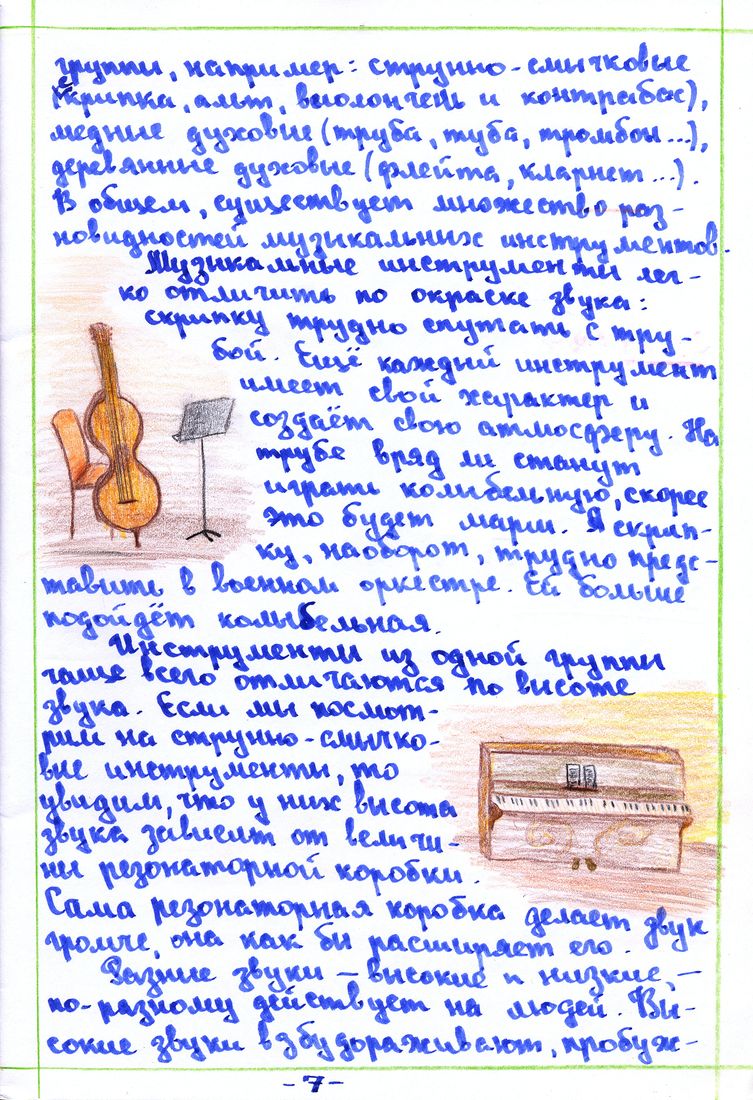 группы, например: струнно-смычковые
(скрипка, альт, виолончель и контрабас),
медные духовые (труба, туба, тромбон...),
деревянные духовые (флейта, кларнет...).
В общем, существует множество раз-
новидностей музыкальных инструментов.
Музыкальные инструменты лег-
ко отличить по окраске звука:
скрипку трудно спутать с тру-
бой. Ещё каждый инструмент
имеет свой характер и
создаёт свою атмосферу. На
трубе вряд ли станут
играть колыбельную, скорее
это будет марш. А скрип-
ку, наоборот, трудно предс-
тавить в военном оркестре. Ей больше
подойдёт колыбельная.
Инструменты из одной группы
чаще всего отличаются по высоте
звука. Если мы посмот-
рим на струнно-смычко-
вые инструменты, то
увидим, что у них высота
звука зависит от величи-
ны резонаторной коробки.
Сама резонаторная коробка делает звук
громче, она как бы расширяет его.
Разные звуки – высокие и низкие, –
по-разному действует на людей. Вы-
сокие звуки взбудораживают, пробуж-
-7-